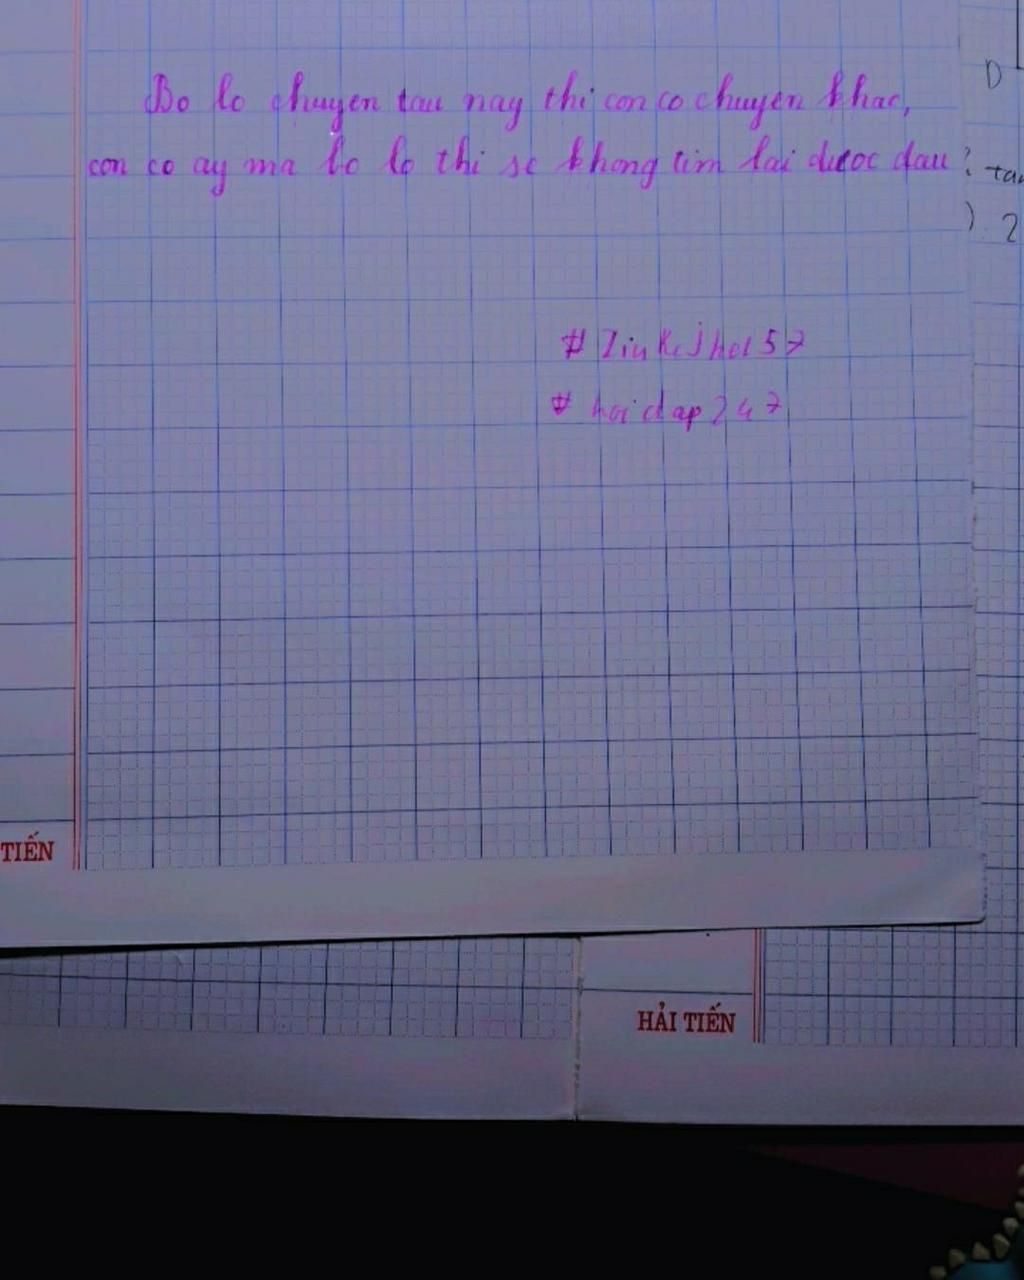 Bo lo chuyen tau nay thi con co chuyen khac,
con co ay ma bo lo thi se khong tim lai duoc dau
# ZinKijhol57
# hoidap247
TIẾN
HẢI TIẾN
D
? tau
) 2